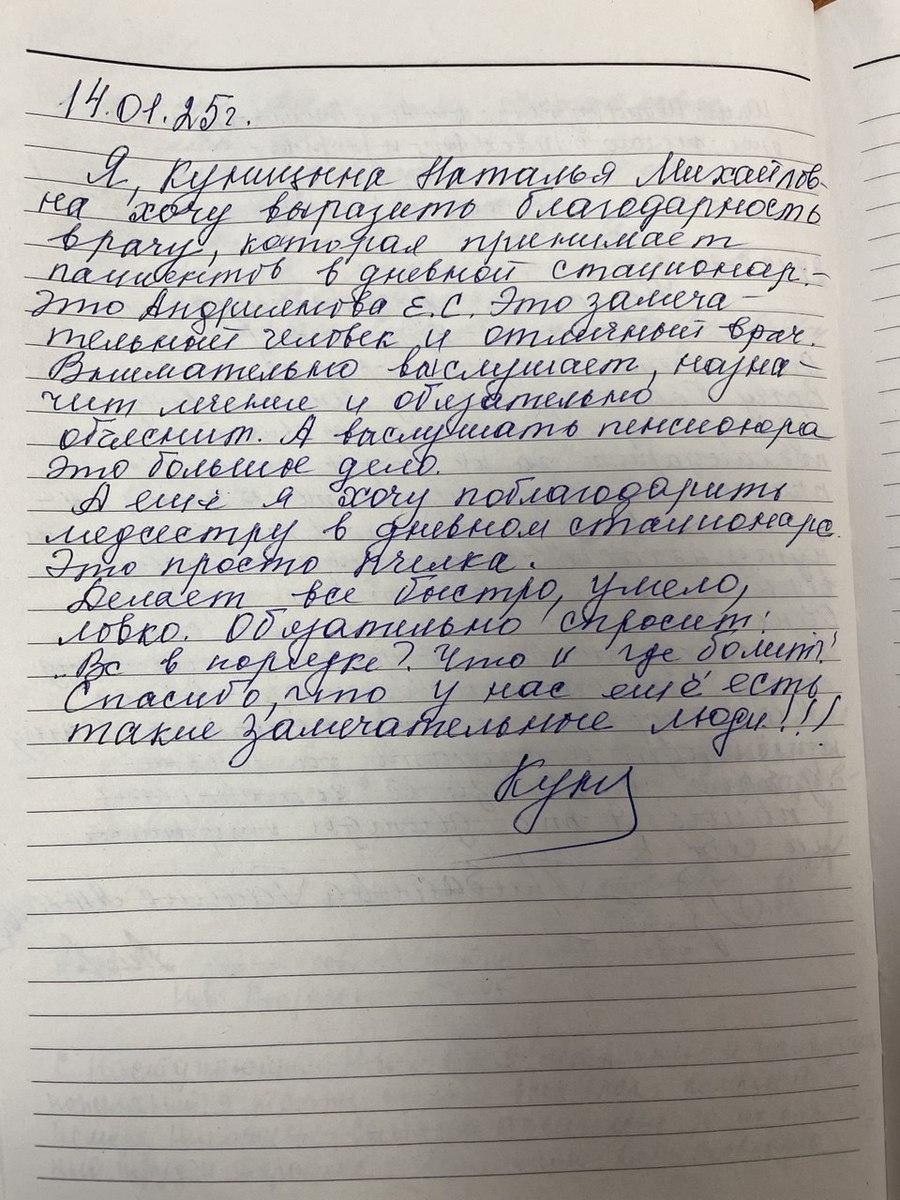 14.01.25г.
Я, Куницына Наталья Михайлов-
на хочу выразить благодарность
врачу, которая принимает
пациентов в дневной стационар.-
Это Андриянова Е.С. Это замеча-
тельный человек и отличный врач.
Внимательно выслушает, назна-
чит лечение и обязательно
объяснит. А выслушать пенсионера
это большое дело.
А ещё я хочу поблагодарить
медсестру в дневном стационаре.
Это просто Пчелка.
Делает все быстро, умело,
ловко. Обязательно спросит:
„Вс в порядке? Что и где болит?
Спасибо, что у нас ещё есть
такие замечательные люди!!!
Кун